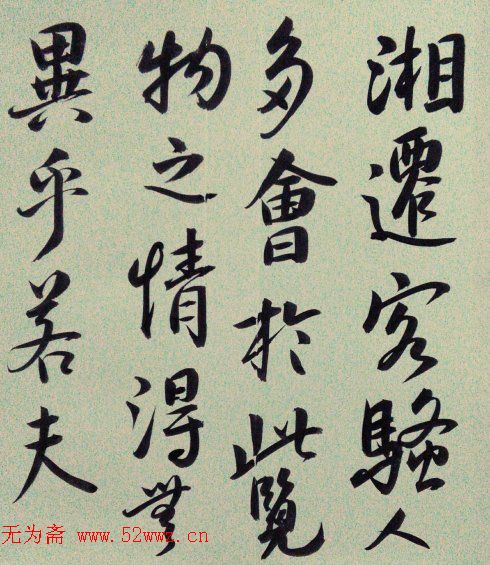 湘遷客騷人
多會於此覽
物之情得無
異乎若夫
无为斋 www.52wwz.cn